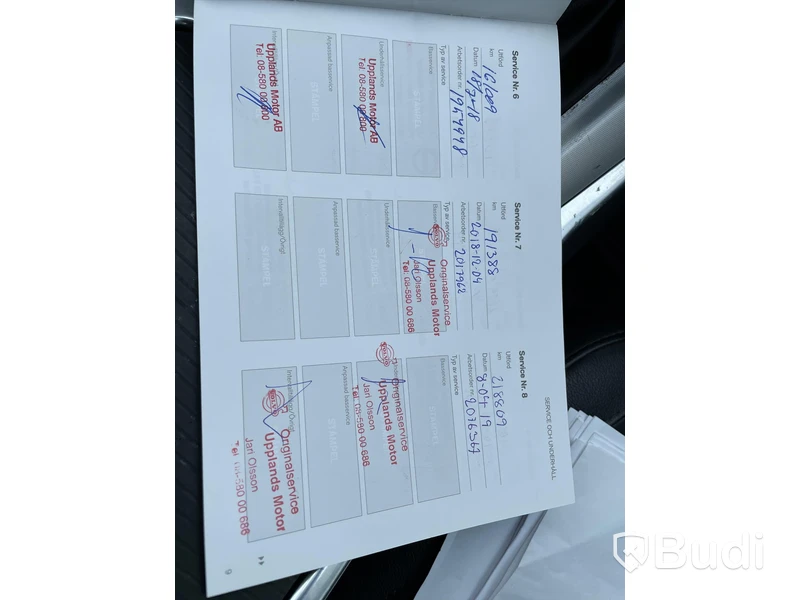 SERVICE OCH UNDERHÅLL
Service Nr. 6
Utförd
km 161009
Datum
Arbetsorder nr. 1954948
Typ av service
Basservice
STÄMPEL
Underhållsservice
Upplands Motor AB
Tel. 08-580 00 800
Anpassad basservice
STÄMPEL
Upplands Motor AB
Tel. 08-580 00 800
Service Nr. 7
Utförd
km 191388
Datum 2018-12-04
Arbetsorder nr. 2017962
Typ av service
Basservice
VOLVO
Originalservice
Upplands Motor
Jari Olsson
Tel. 08-580 00 686
Underhållsservice
STÄMPEL
Anpassad basservice
STÄMPEL
Internettillägg/Övrigt
STÄMPEL
Service Nr. 8
Utförd
km 218809
Datum 8-04-19
Arbetsorder nr. 2076367
Typ av service
Basservice
STÄMPEL
VOLVO
Originalservice
Upplands Motor
Jari Olsson
Tel. 08-580 00 686
Anpassad basservice
STÄMPEL
VOLVO
Originalservice
Upplands Motor
Jari Olsson
Tel. 08-580 00 686
9
Budi